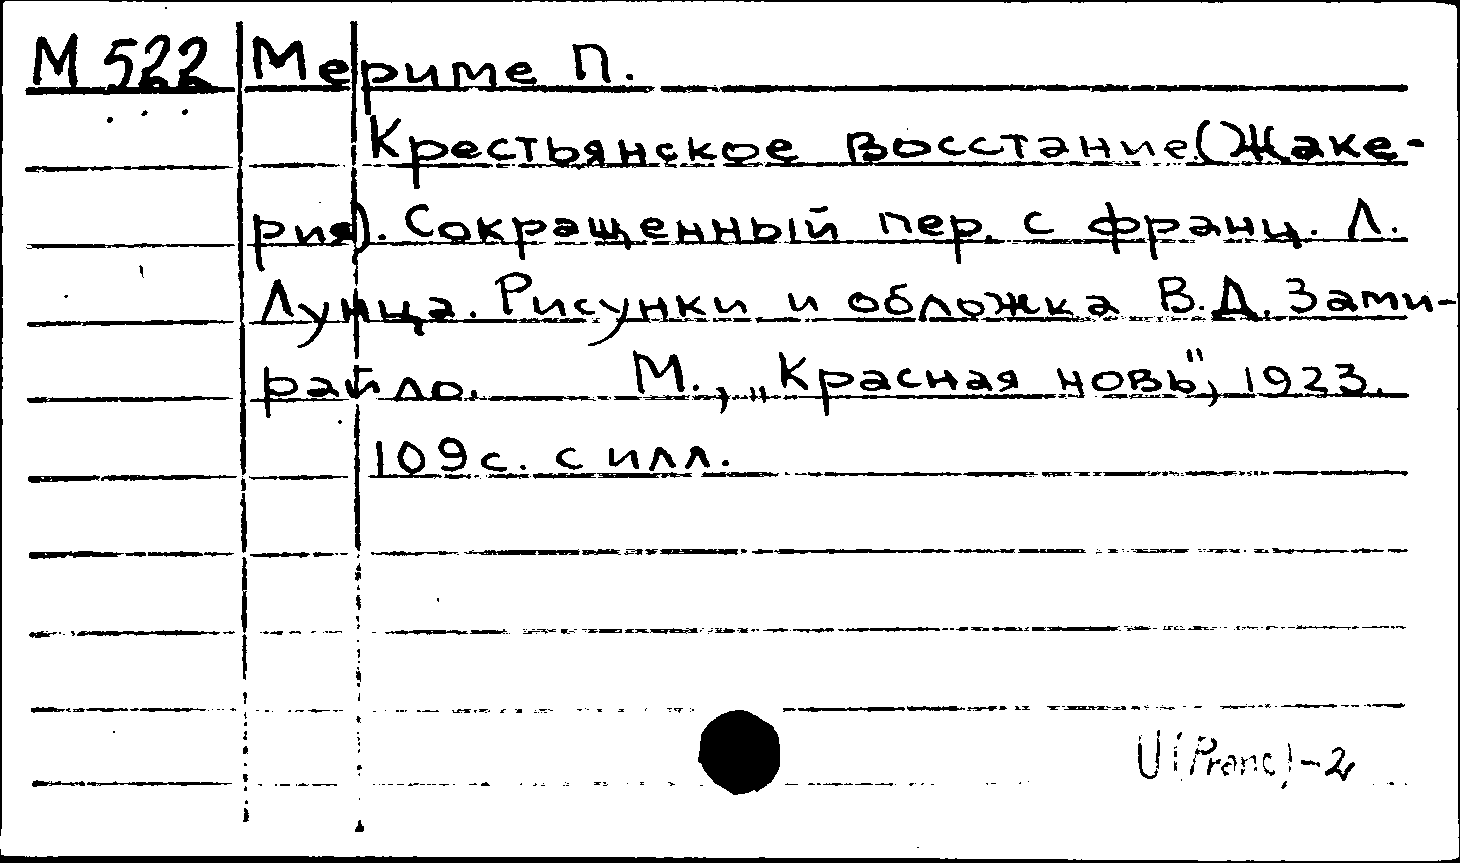 М 522 Мериме П.
Крестьянское восстание (Жаке-
рия). Сокращенный пер. с франц. Л.
Лунца. Рисунки и обложка В.Д. Зами-
райло. М., „Красная новь", 1923.
109 с. с илл.
U (Pranc) - 2